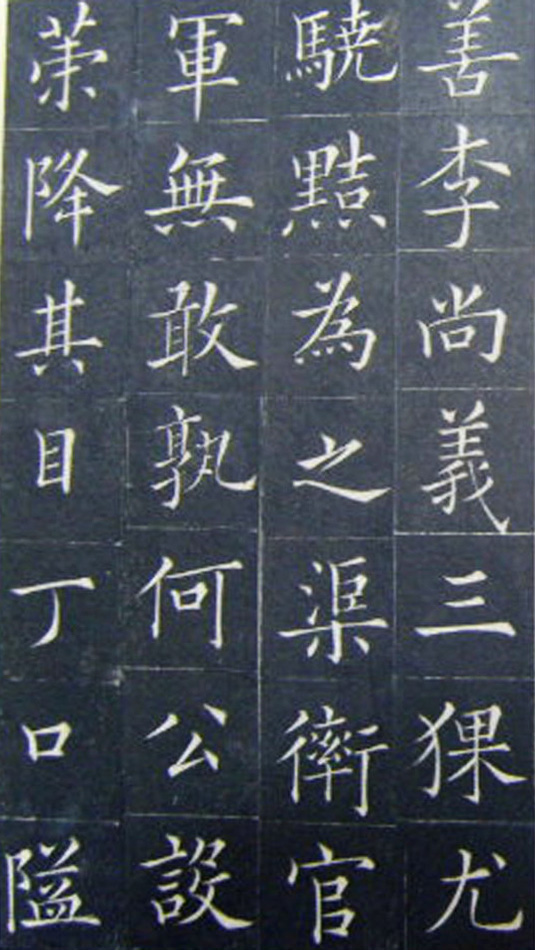 善李尚義三猓尤
驍黠為之渠𧗿官
軍無敢孰何公設
茦降其目丁口隘